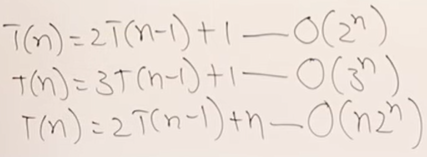 T(n)=2T(n-1)+1—O(2ⁿ)
T(n)=3T(n-1)+1—O(3ⁿ)
T(n)=2T(n-1)+n—O(n2ⁿ)